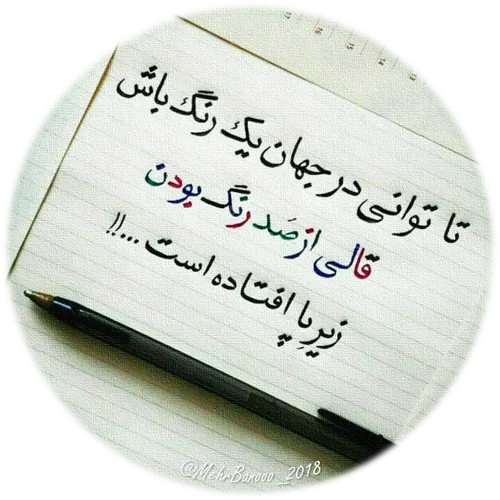 تا توانی در جهان یک رنگ باش
قالی از صَد رنگ بودن
زیرِ پا افتاده است...!!
@MehrBanooo_2018